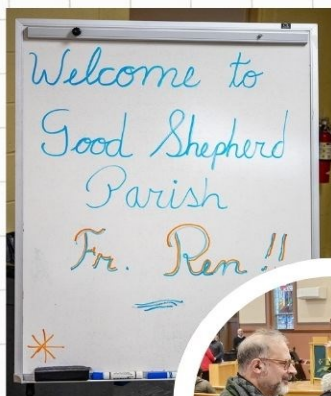 Welcome to
Good Shepherd
Parish
Fr. Ren!!